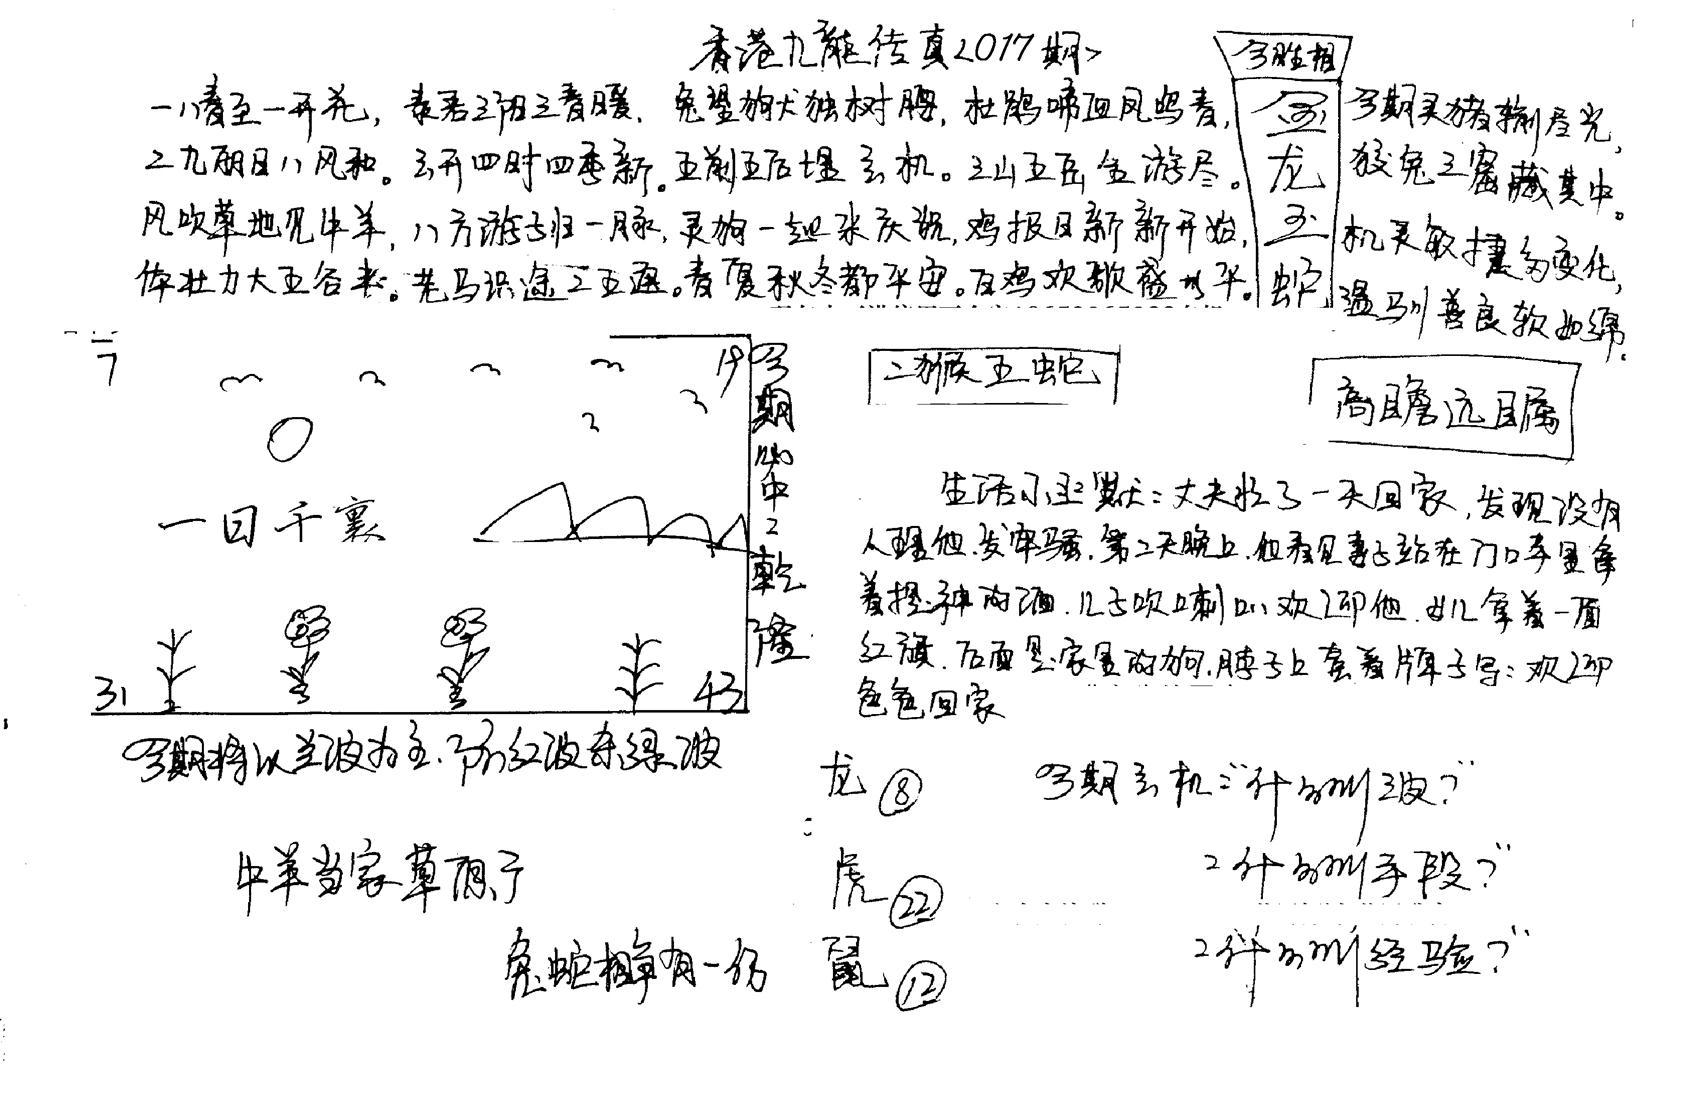 香港九龍传真<2017期>
今期生相
金龙玉蛇
一八春至一开花，春君三阳三春暖，兔望狗犬独树鹏，杜鹃啼血凤鸣春，
二九朗日八风和。云开四时四季新。五前五后埋玄机。三山五岳全游尽。
风吹草地见牛羊，八方游子归一脉，灵狗一起来庆祝，鸡报日新新开始，
体壮力大五谷丰。老马识途二五通。春夏秋冬都平安。百鸡欢歌盛太平。
今期灵猪输尽光，
狡兔三窟藏其中。
机灵敏捷多变化，
温驯善良软如绵.
7
19
一日千裏
31
43
今期必中2乾隆
二猴五蛇
高瞻远瞩
生活小幽默：丈夫忙了一天回家，发现没有
人理他.发牢骚.第二天晚上.他看见妻子站在门口手里拿
着提神的酒.儿子吹口刺叭欢迎他.女儿拿着一面
红旗.后面是家里的狗.脖子上套着牌子写：欢迎
爸爸回家
今期将以兰波为主.防红波杀绿波
龙 ⑧
虎 ㉒
鼠 ⑫
今期玄机："什么叫三波？"
2什么叫手段？"
2什么叫经验？"
牛羊当家草原子
兔蛇相争有一份